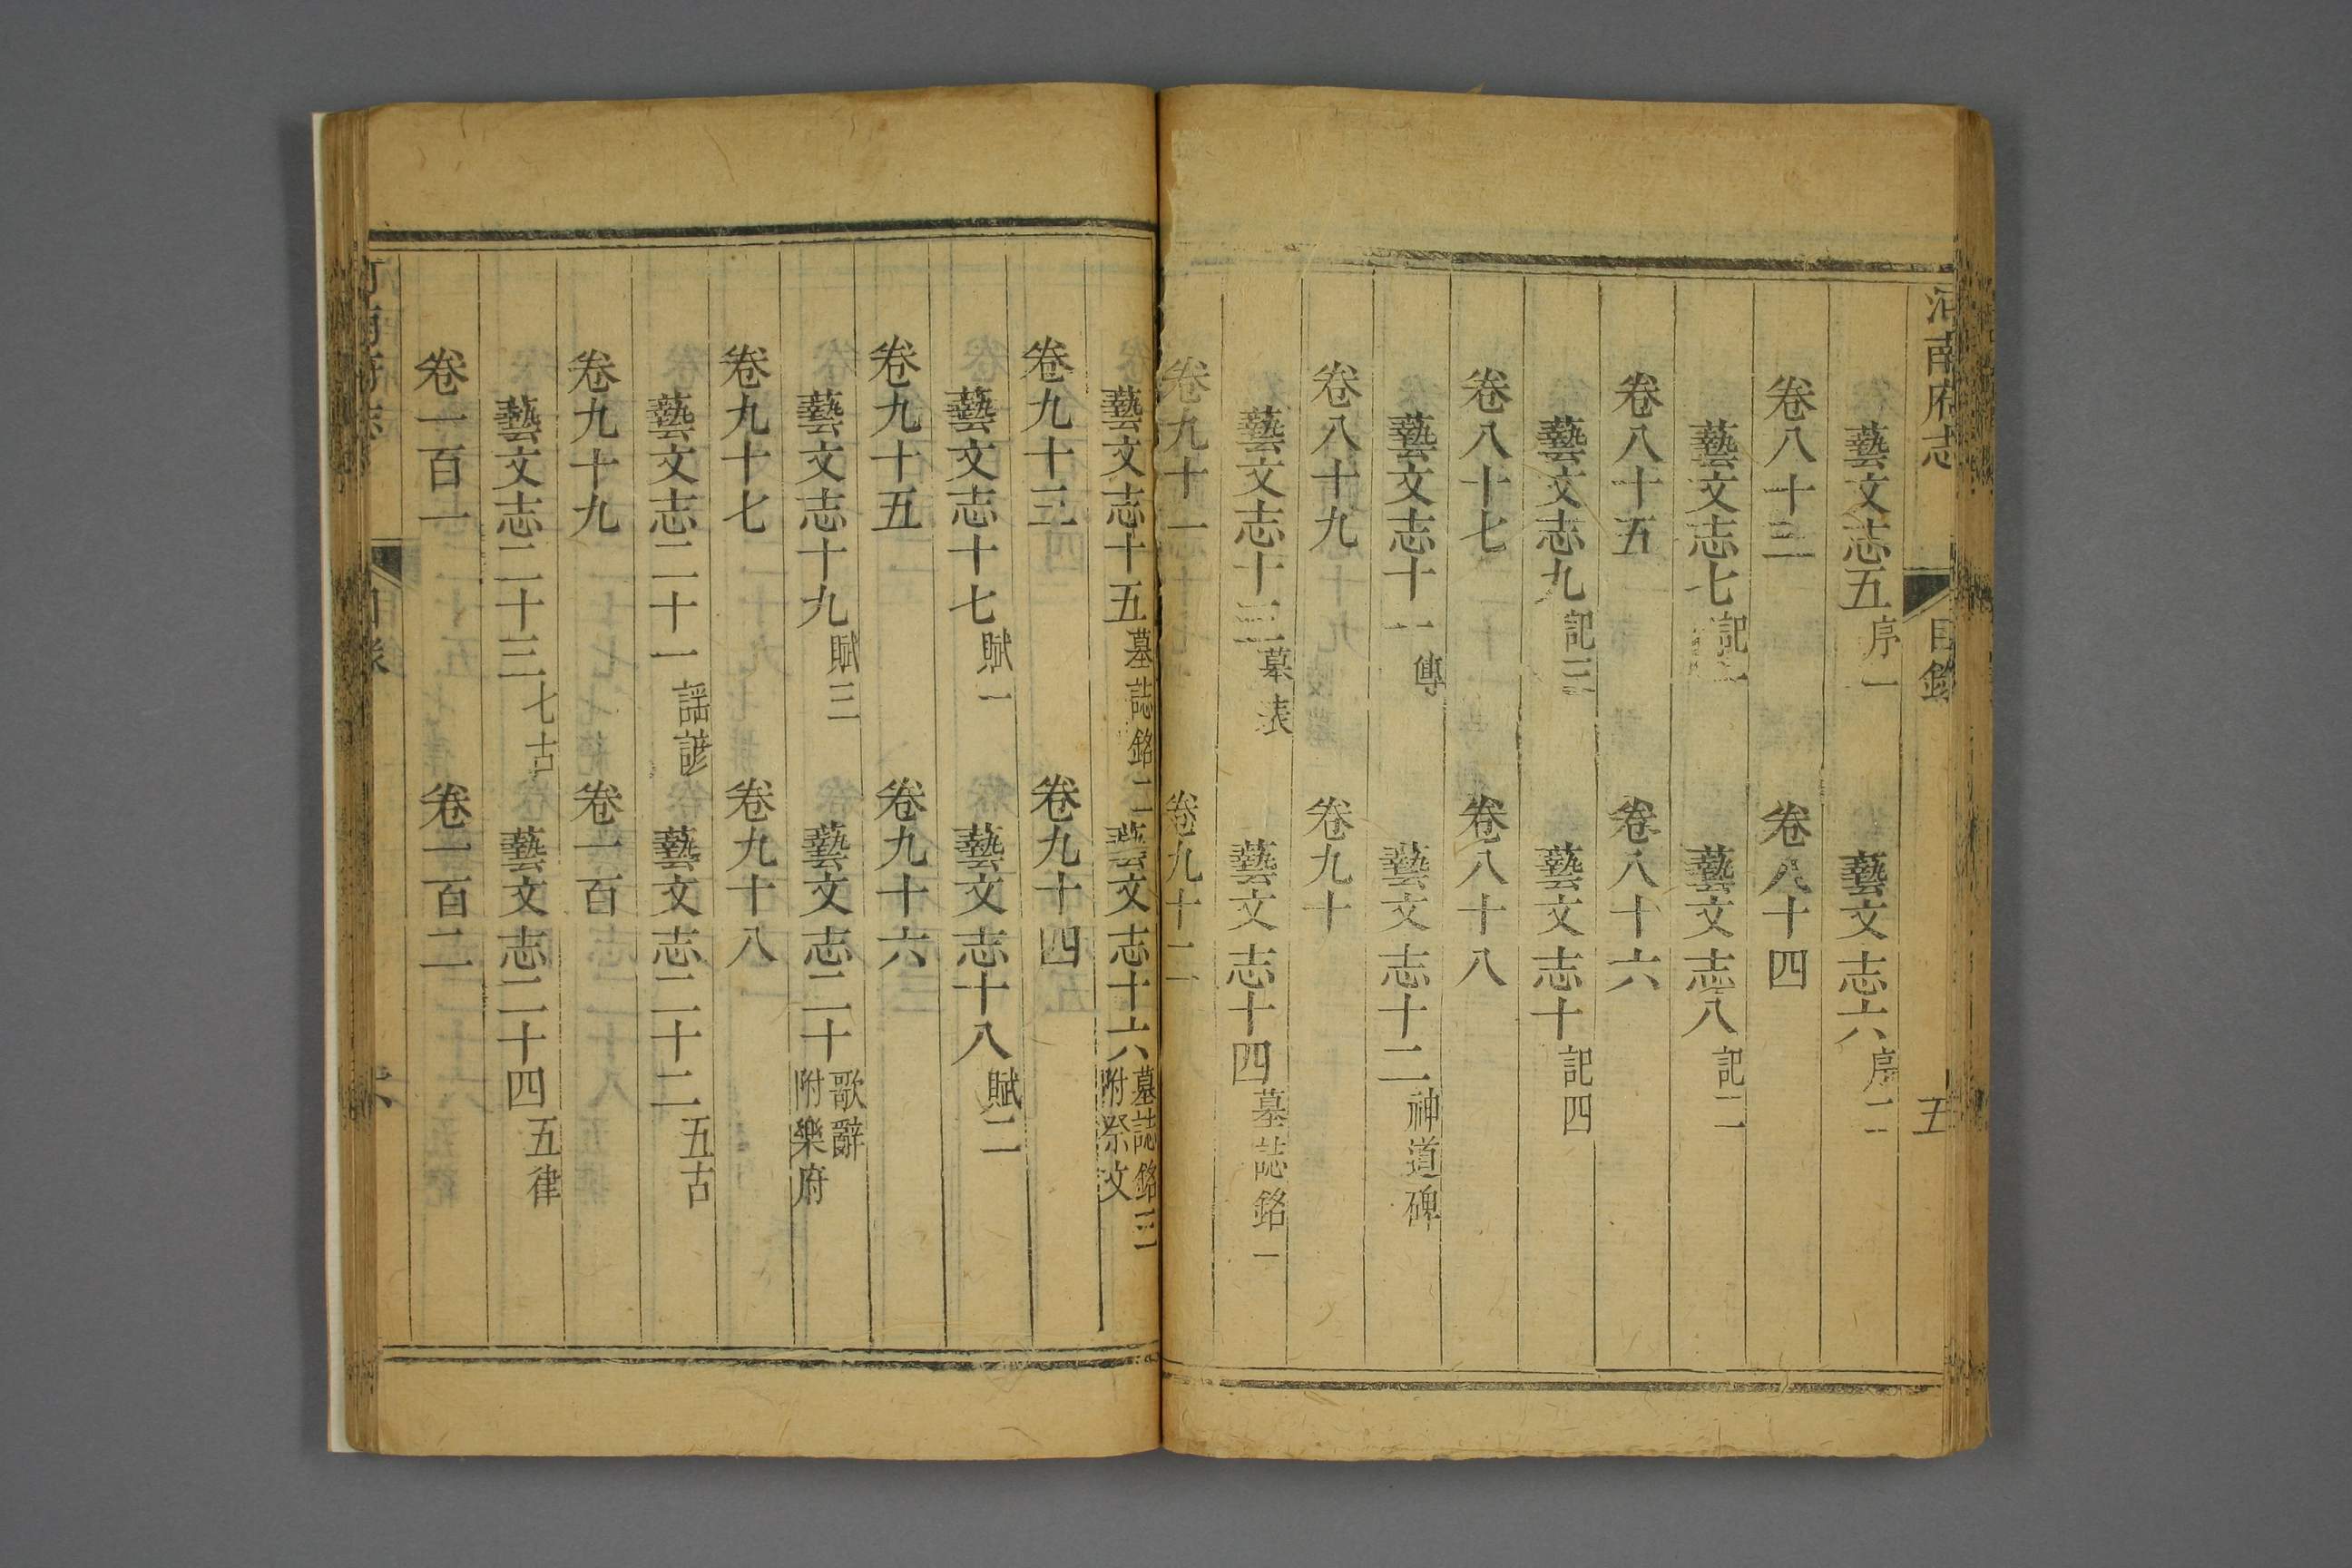 河南府志 目錄 五
藝文志五 序一 藝文志六 序二
卷八十三 卷八十四
藝文志七 記一 藝文志八 記二
卷八十五 卷八十六
藝文志九 記三 藝文志十 記四
卷八十七 卷八十八
藝文志十一 傳 藝文志十二 神道碑
卷八十九 卷九十
藝文志十三 墓表 藝文志十四 墓誌銘一
卷九十一 卷九十二
藝文志十五 墓誌銘二 藝文志十六 墓誌銘三 附祭文
卷九十三 卷九十四
藝文志十七 賦一 藝文志十八 賦二
卷九十五 卷九十六
藝文志十九 賦三 藝文志二十 歌辭 附樂府
卷九十七 卷九十八
藝文志二十一 謡諺 藝文志二十二 五古
卷九十九 卷一百
藝文志二十三 七古 藝文志二十四 五律
卷一百一 卷一百二
河南府志 目錄 六